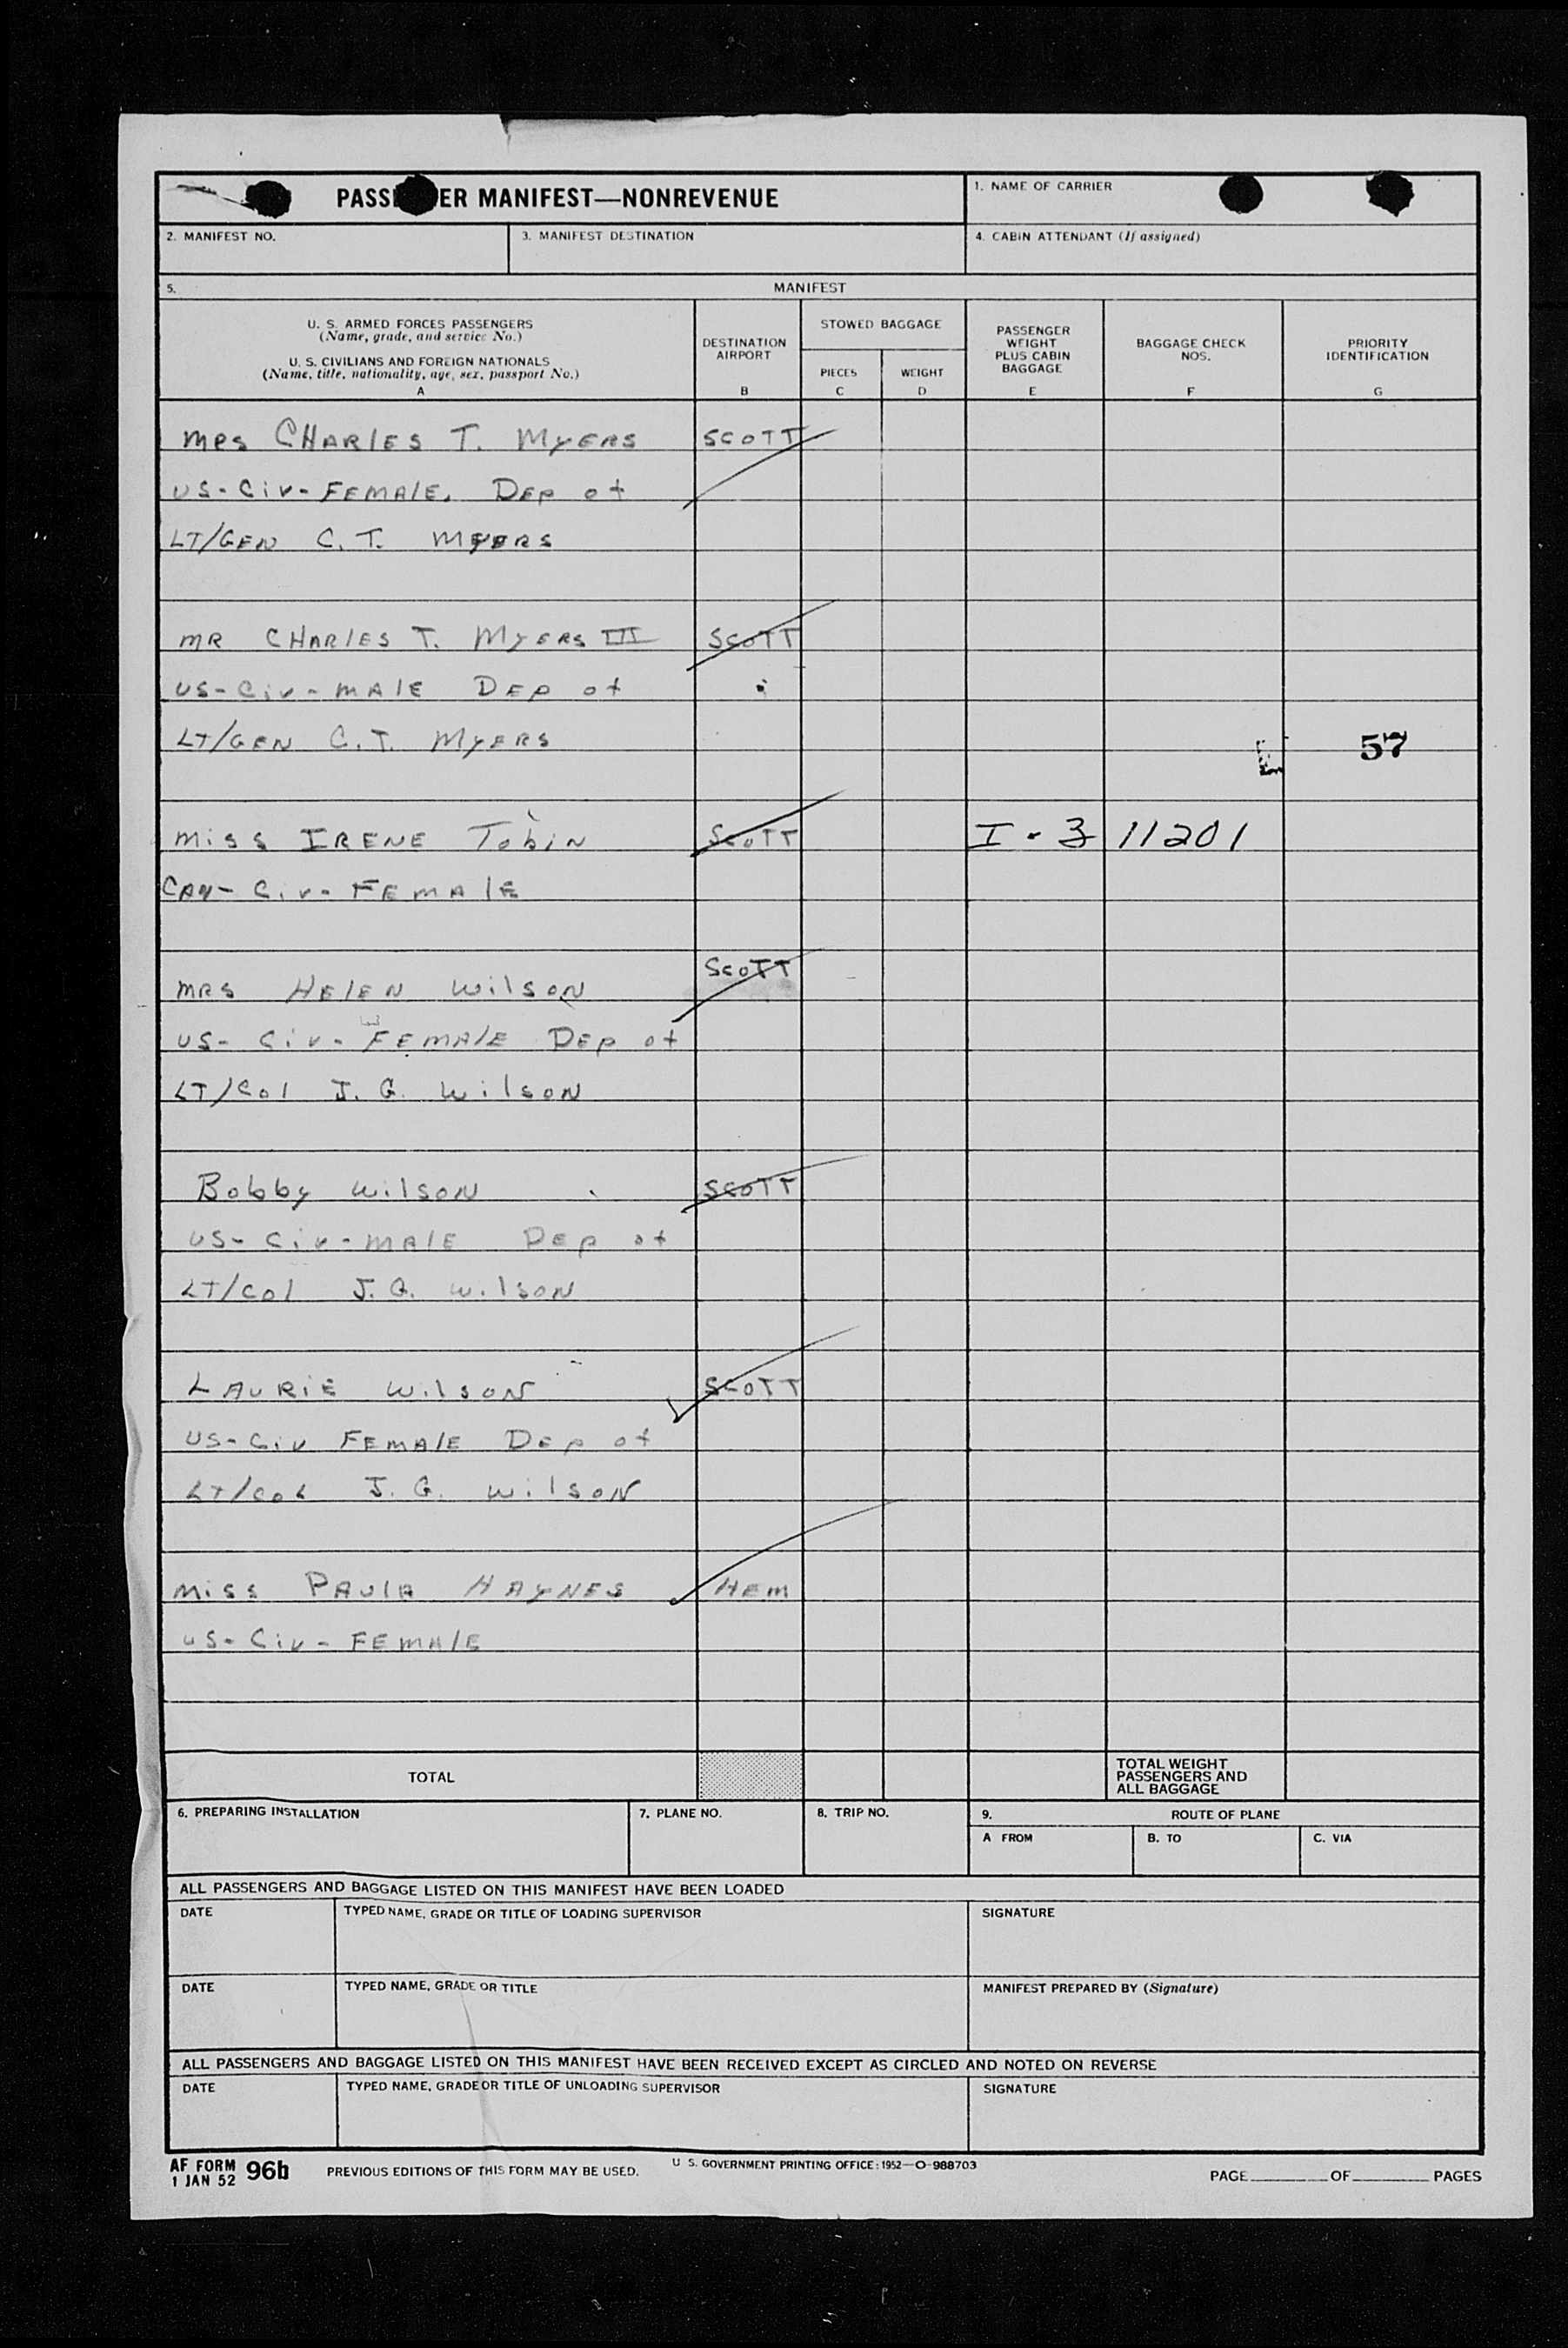 PASS ER MANIFEST—NONREVENUE
1. NAME OF CARRIER
2. MANIFEST NO.
3. MANIFEST DESTINATION
4. CABIN ATTENDANT (If assigned)
5.
MANIFEST
U. S. ARMED FORCES PASSENGERS
(Name, grade, and service No.)
U. S. CIVILIANS AND FOREIGN NATIONALS
(Name, title, nationality, age, sex, passport No.)
A
DESTINATION
AIRPORT
B
STOWED BAGGAGE
PIECES
C
WEIGHT
D
PASSENGER
WEIGHT
PLUS CABIN
BAGGAGE
E
BAGGAGE CHECK
NOS.
F
PRIORITY
IDENTIFICATION
G
MRS CHARLES T. MYERS SCOTT
US-Civ-FEMALE. DEP of
LT/GEN C.T. MYERS
MR CHARLES T. MYERS III SCOTT
US-Civ-MALE DEP of
LT/GEN C.T. MYERS 57
MISS IRENE TobiN SCOTT I-3 11201
CAN-Civ-FEMALE
MRS HELEN WilSON SCOTT
US-Civ-FEMALE DEP of
LT/Col J.G. WilSON
Bobby WilSON SCOTT
US-Civ-MALE DEP of
LT/Col J.G. WilSON
LAURIE WilSON SCOTT
US-Civ FEMALE DEP of
LT/COL J.G. WilSON
MISS PAULA HAYNES HEM
US-Civ-FEMALE
TOTAL
TOTAL WEIGHT
PASSENGERS AND
ALL BAGGAGE
6. PREPARING INSTALLATION
7. PLANE NO.
8. TRIP NO.
9. ROUTE OF PLANE
A FROM
B. TO
C. VIA
ALL PASSENGERS AND BAGGAGE LISTED ON THIS MANIFEST HAVE BEEN LOADED
DATE
TYPED NAME, GRADE OR TITLE OF LOADING SUPERVISOR
SIGNATURE
DATE
TYPED NAME, GRADE OR TITLE
MANIFEST PREPARED BY (Signature)
ALL PASSENGERS AND BAGGAGE LISTED ON THIS MANIFEST HAVE BEEN RECEIVED EXCEPT AS CIRCLED AND NOTED ON REVERSE
DATE
TYPED NAME, GRADE OR TITLE OF UNLOADING SUPERVISOR
SIGNATURE
AF FORM
1 JAN 52 96b
PREVIOUS EDITIONS OF THIS FORM MAY BE USED.
U S. GOVERNMENT PRINTING OFFICE: 1952—O-988703
PAGE OF PAGES